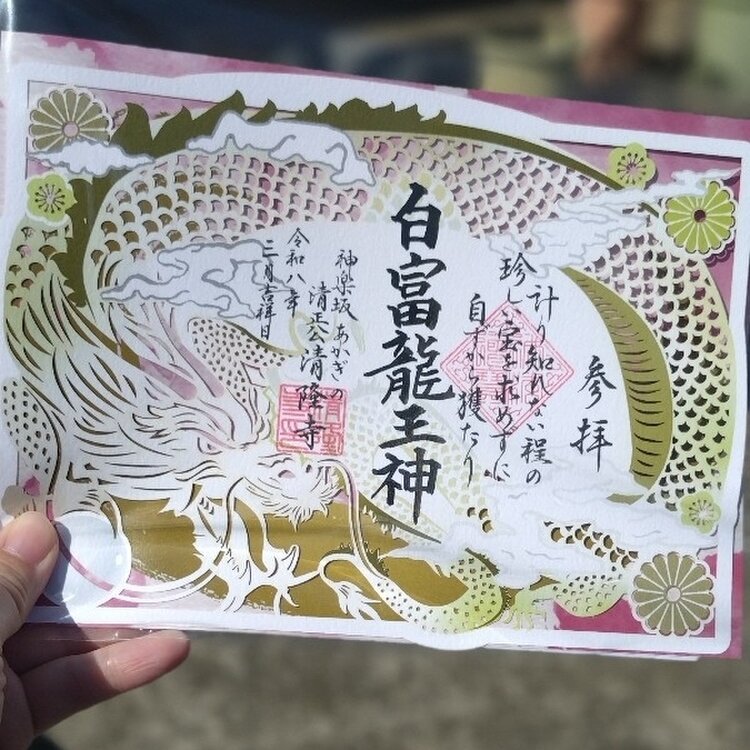 参拝
計り知れない程の
珍しい宝を求めずに
自ずから獲たり
白富龍王神
神楽坂あかぎの
清正公清隆寺
令和八年
三月吉祥日